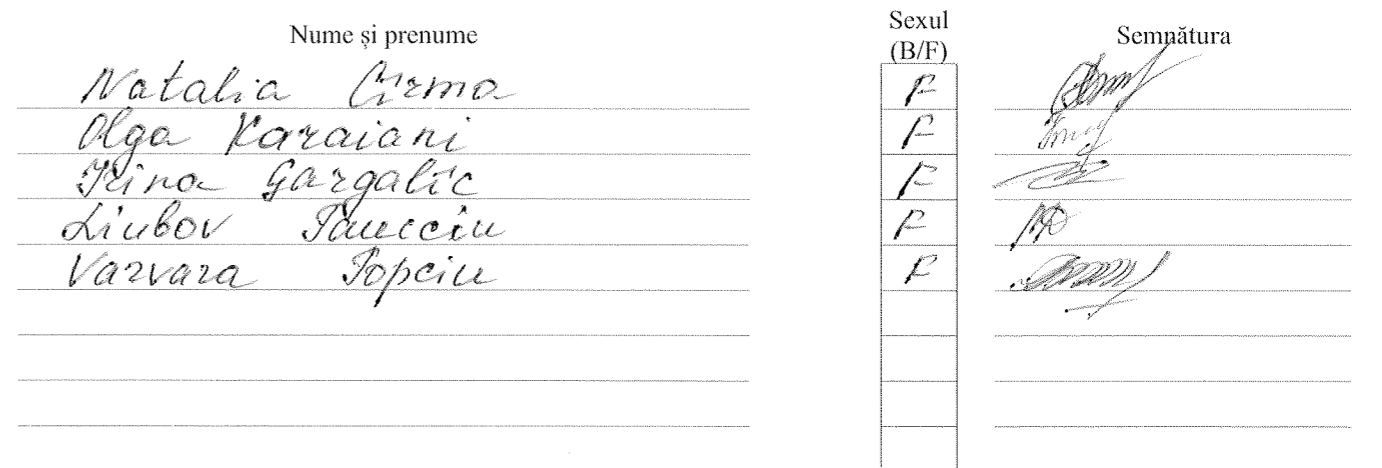 Nume și prenume Sexul (B/F) Semnătura
Natalia Cîrma F
Olga Karaiani F
Irina Gargalîc F
Liubov F
Varvara Topciu F